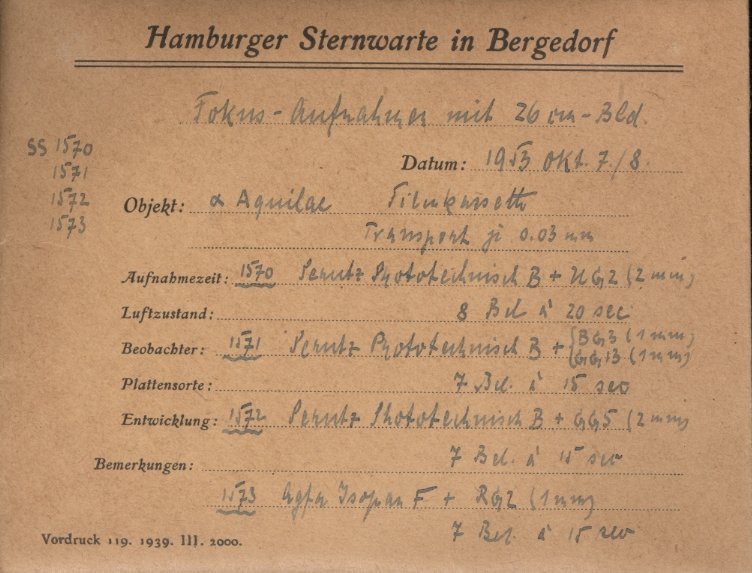 Hamburger Sternwarte in Bergedorf
Fokus-Aufnahmen mit 26 cm-Bld.
SS 1570
1571
1572
1573
Datum: 1953 Okt. 7./8.
Objekt: α Aquilae Filmkassette
Transport je 0.03 mm
Aufnahmezeit: 1570 Perutz Phototechnisch B + UG2 (2 mm)
Luftzustand: 8 Bel. à 20 sec
Beobachter: 1571 Perutz Phototechnisch B + { BG3 (1 mm) GG13 (1 mm)
Plattensorte: 7 Bel. à 15 sec
Entwicklung: 1572 Perutz Phototechnisch B + GG5 (2 mm)
Bemerkungen: 7 Bel. à 15 sec
1573 Agfa Isopan F + RG2 (1 mm)
7 Bel. à 15 sec
Vordruck 119. 1939. III. 2000.